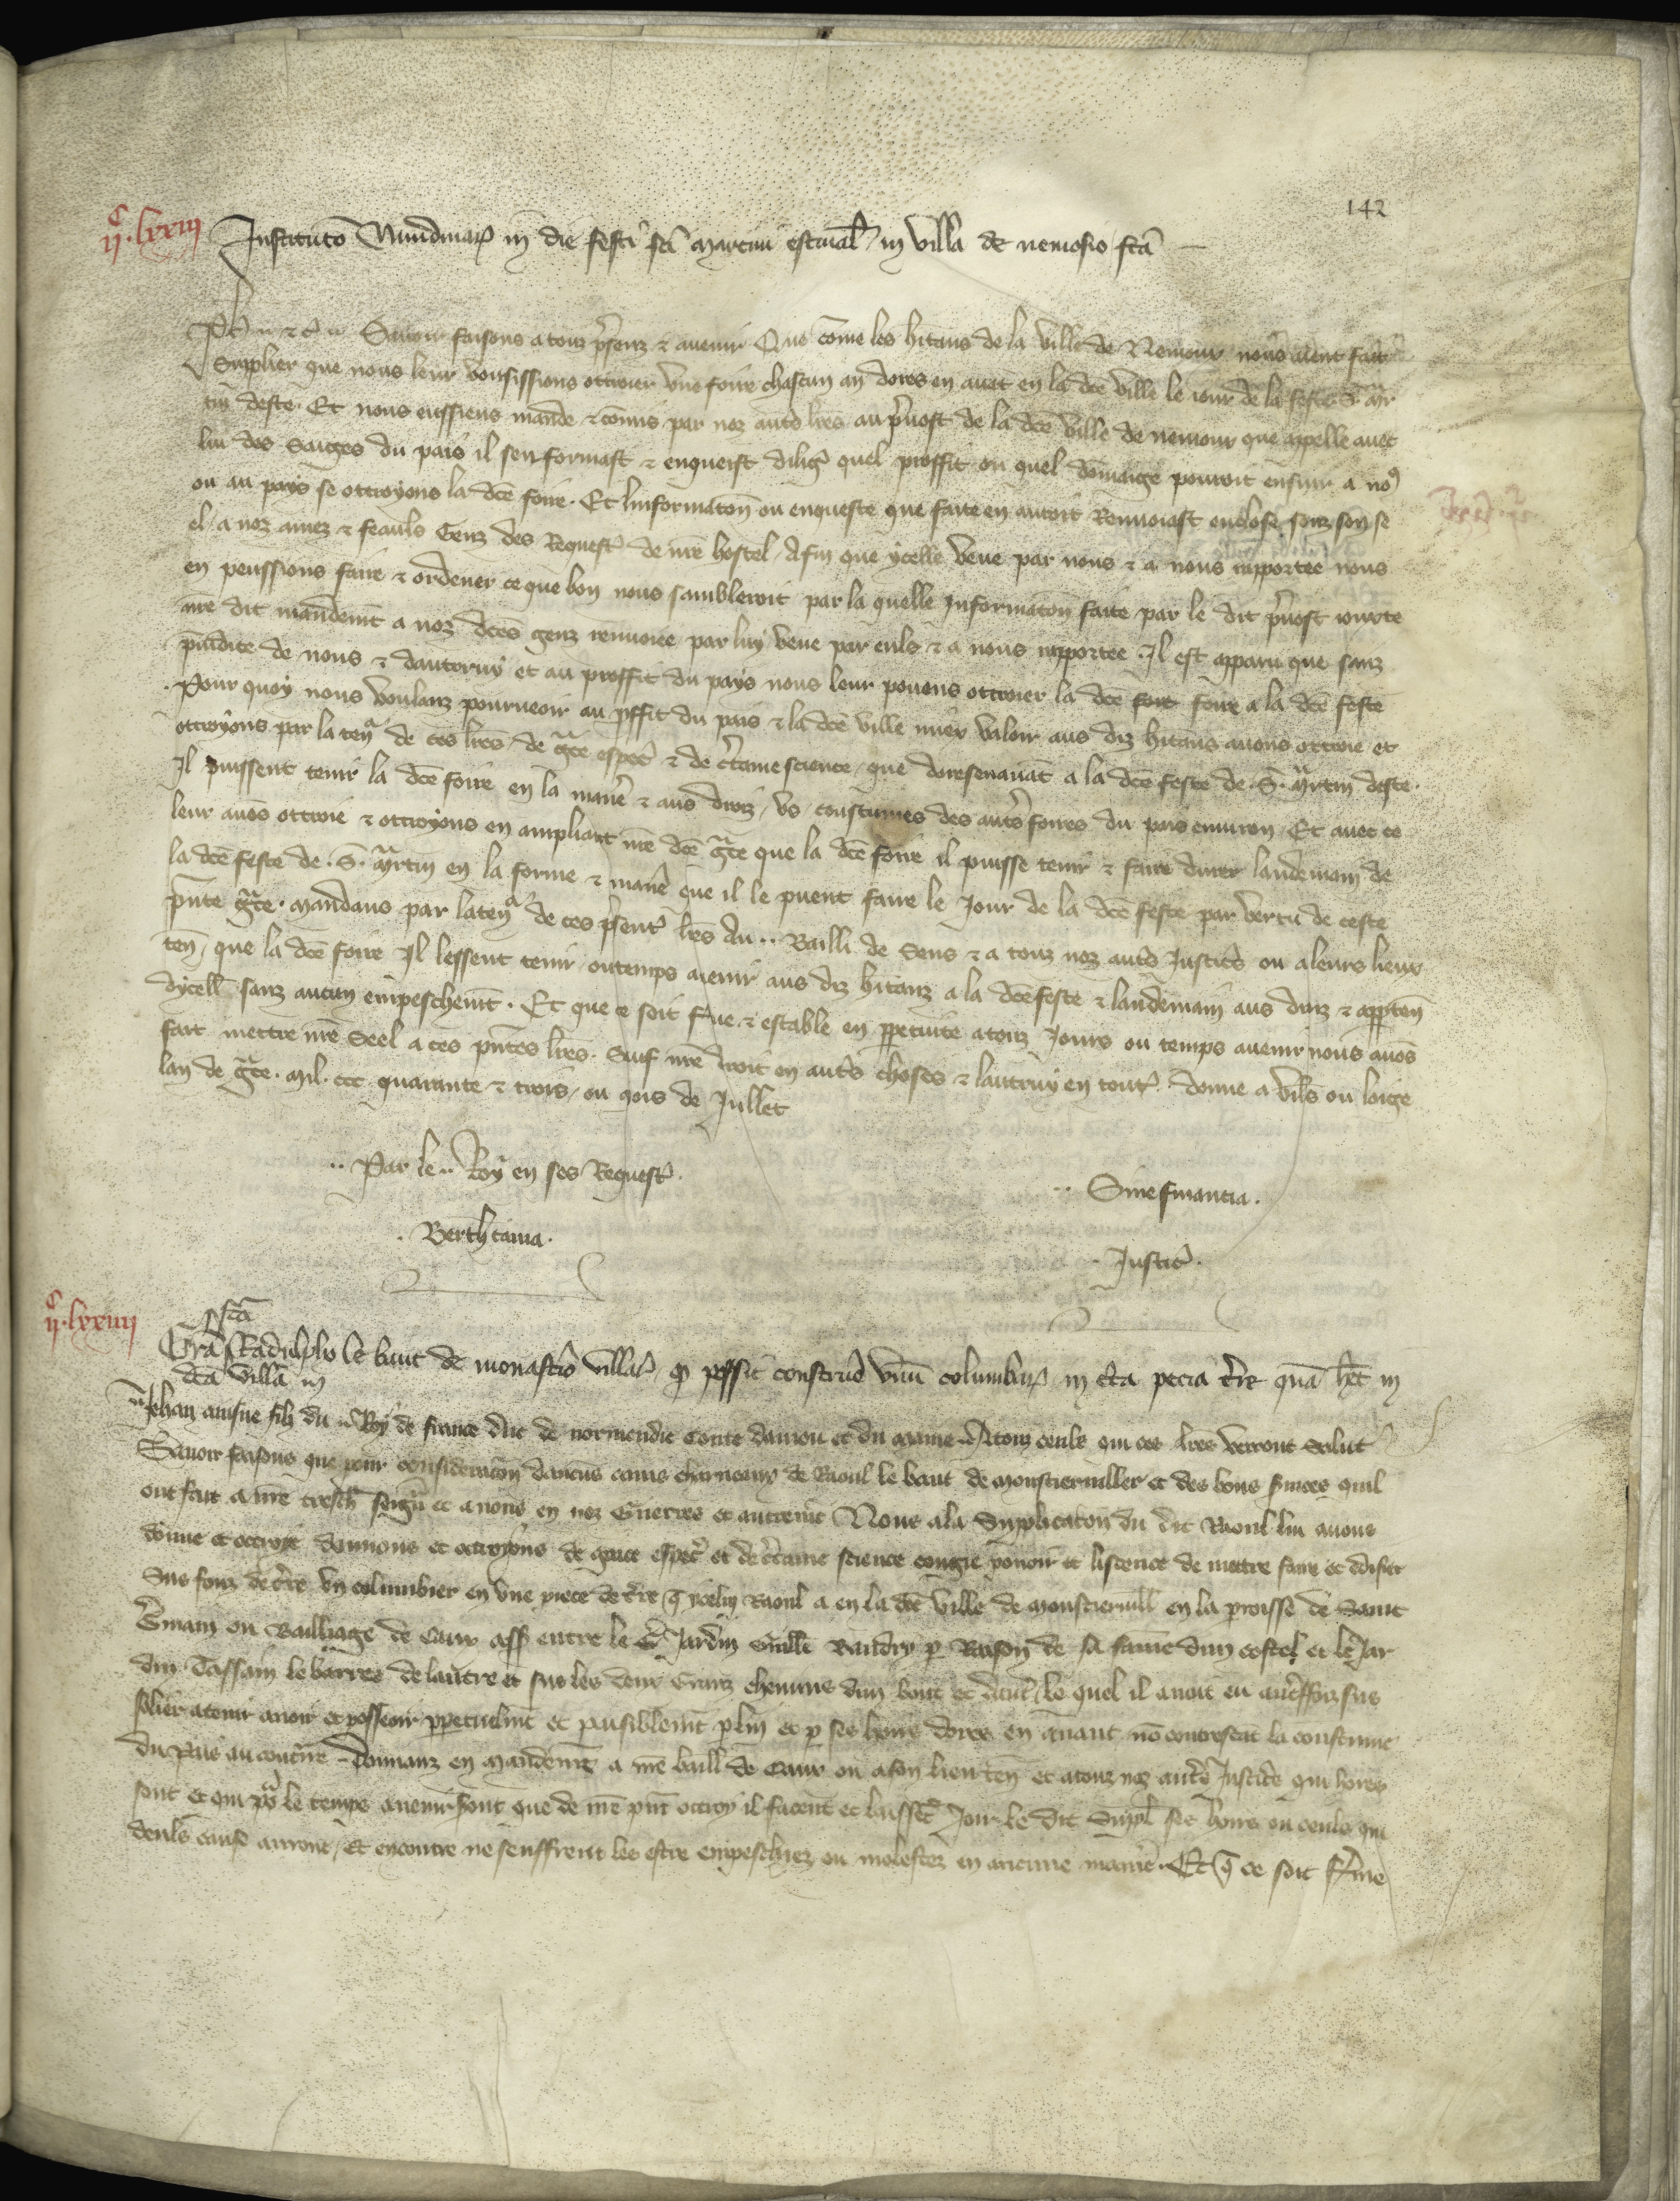 142
ijc.lxxiij Institutō Nundinaꝝ in die festi sc̄i martini estiual̄ in villa de nemosio sc̄a
Ph̄ &c̄ Sauoir faisons a touz p̄senz & auenir Que cōme les h̄itans de la ville de Nemour nous aient fait
Supplier que nous leur vousissions ottroier vne foire chascun an dores en auāt en la dc̄e ville le iour de la feste .S. mar
tin deste. Et nous eussiens mande & cōmis par noz autrs l̄res au p̄uost de la dc̄e ville de nemour que appelle auec
lui des Saiges du pais il senformast & enqueist diliḡ quel proffit ou quel dōmaige pouroit ensuir a noꝰ
ou au pays se ottroyons la dc̄e foire. Et linformatōn ou enqueste que faite en auroit Renuoiast enclose souz son se
el. a noz amez & feauls Genz des Requestes de nr̄e hostel, Afin que ycelle veue par nous & a nous rapportee nous
en peussions faire & ordener ce que bon nous sambleroit par la quelle Informatōn faite par le dit p̄uost iouxte
nr̄e dit mandemt̄ a noz dc̄es genz renuoiee par luy veue par euls & a nous rapportee. Il est apparu que sanz
p̄iudice de nous & dautruy et au proffit du pays nous leur pouons ottroier la dc̄e foir foire a la dc̄e feste
. Pour quoy nous voulanz pourueoir au p̄ffit du pais & la dc̄e ville miex valoir aus diz h̄itans auons ottroie et
ottroyons par la teneur de ces l̄res, de gr̄ce espec̄ & de c̄taine science, que doresenauāt a la dc̄e feste de .S. martin deste.
Il puissent tenir la dc̄e foire en la manie & aus droiz, vs, coustumes des autrs foires du pais enuiron, Et auec ce
leur auōs ottroie & ottroyons en ampliāt nr̄e dc̄e gr̄ce que la dc̄e foire il puisse tenir & faire durer landemain de
la dc̄e feste de .S. martin en la forme & manie que il le puent faire le Jour de la dc̄e feste par vertu de ceste
p̄nte gr̄ce. mandans par la teneur de ces p̄sentes l̄res Au .. Bailli de Sens & a touz noz autrs Justic̄rs ou a leurs lieux
ten̄, que la dc̄e foire Il lessent tenir ou temps auenir aus diz h̄itanz a la dc̄e feste & landemain aus droiz & apparten̄
dycelle sanz aucun empeschemt̄. Et que ce soit f̄me & estable en perpetuite a touz Jours ou temps auenir nous auōs
fait mettre nr̄e Seel a ces p̄ntes l̄res. Sauf nr̄e droit en autrs choses & lautruy en toutes. Donne a vil̄es ou loige
lan de gr̄ce. mil. ccc. quarante & trois, ou mois de Jullet
.. Par le .. Roy en ses Requestes.
.. Sine financia.
. Berth
. Justic̄.
ijc.lxxiiij Gra sc̄a Radulpho le baut de monastrio villar̄ qd possit construe vnū columbaꝝ in c̄ta pecia t̄re quā het̄ in
dc̄a villa in
Jehan ainsne filz du .. Roy de france duc de normendie Conte daniou et du maine. A touz ceuls qui ces l̄res verront Salut
Sauoir faisons que pour consideratōn daucuns amis charneux de Raoul le baut de monstieruiller et des bons suices quil
ont fait a nr̄e tresch̄ seigr̄ et a nous en noz Guerres et autremt̄ Nous a la Supplicatōn du dit Raoul lui auons
donne et ottroye donnons et ottroyons de grace espec̄ et de c̄taine science congie pouoir et liscence de mettre faire et edifier
Sus fonz de t̄re vn columbier en vne piece de t̄re q̄ ycelui Raoul a en la dc̄e ville de monstieruill̄ en la parroisse de Saint
Germain ou Bailliage de Caux ass̄ entre le Jardin Guill̄e Baudry par Raison de sa fame dun costel et le Jar
din Tassain le barres de lautre et sus les deux Granz chemins dun bout et dautre, le quel il auoit eu autreffoiz sus
solier a tenir auoir et posseoir perpetuelmt̄ et paisiblemt̄ par lui et par ses hoirs dores en auant nō contrestāt la coustume
du Pais au contrre. Donnanz en mandemt̄ a nr̄e baill̄ de Caux ou a son lieu ten̄ et a touz noz autrs Justic̄rs qui hores
sont et qui por le temps auenir sont que de nr̄e p̄nt ottroy il facent et laissēt Joir le dit Suppl̄ ses hoirs ou ceuls qui
deuls cause auront, Et encontre ne seuffrent les estre empeschiez ou molestez en aucune manie. Et q̄ ce soit f̄me